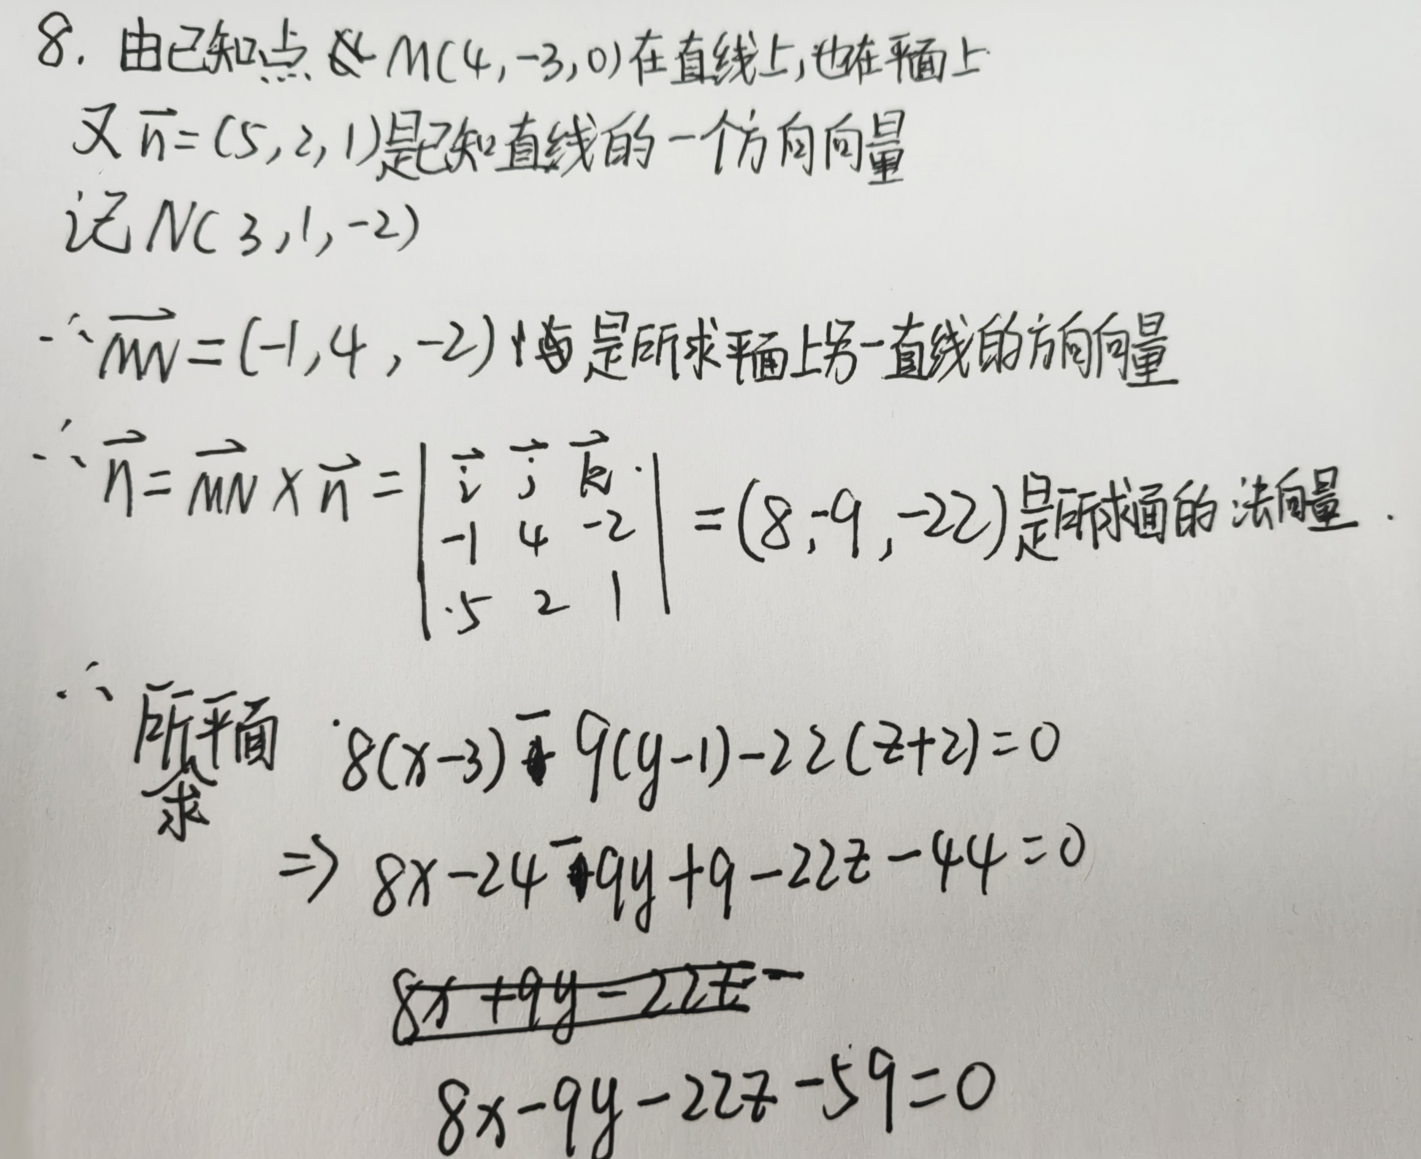 8. 由已知点 M(4,-3,0)在直线上,也在平面上
又 n⃗=(5,2,1)是已知直线的一个方向向量
记 N(3,1,-2)
∴ MN⃗=(-1,4,-2) 是所求平面上另一直线的方向向量
∴ n⃗=MN⃗×n⃗=| i⃗ j⃗ k⃗ |=(8,-9,-22)是所求面的法向量.
-1 4 -2
5 2 1
∴ 所求平面 8(x-3)-9(y-1)-22(z+2)=0
⇒ 8x-24-9y+9-22z-44=0
8x+9y-22z-
8x-9y-22z-59=0